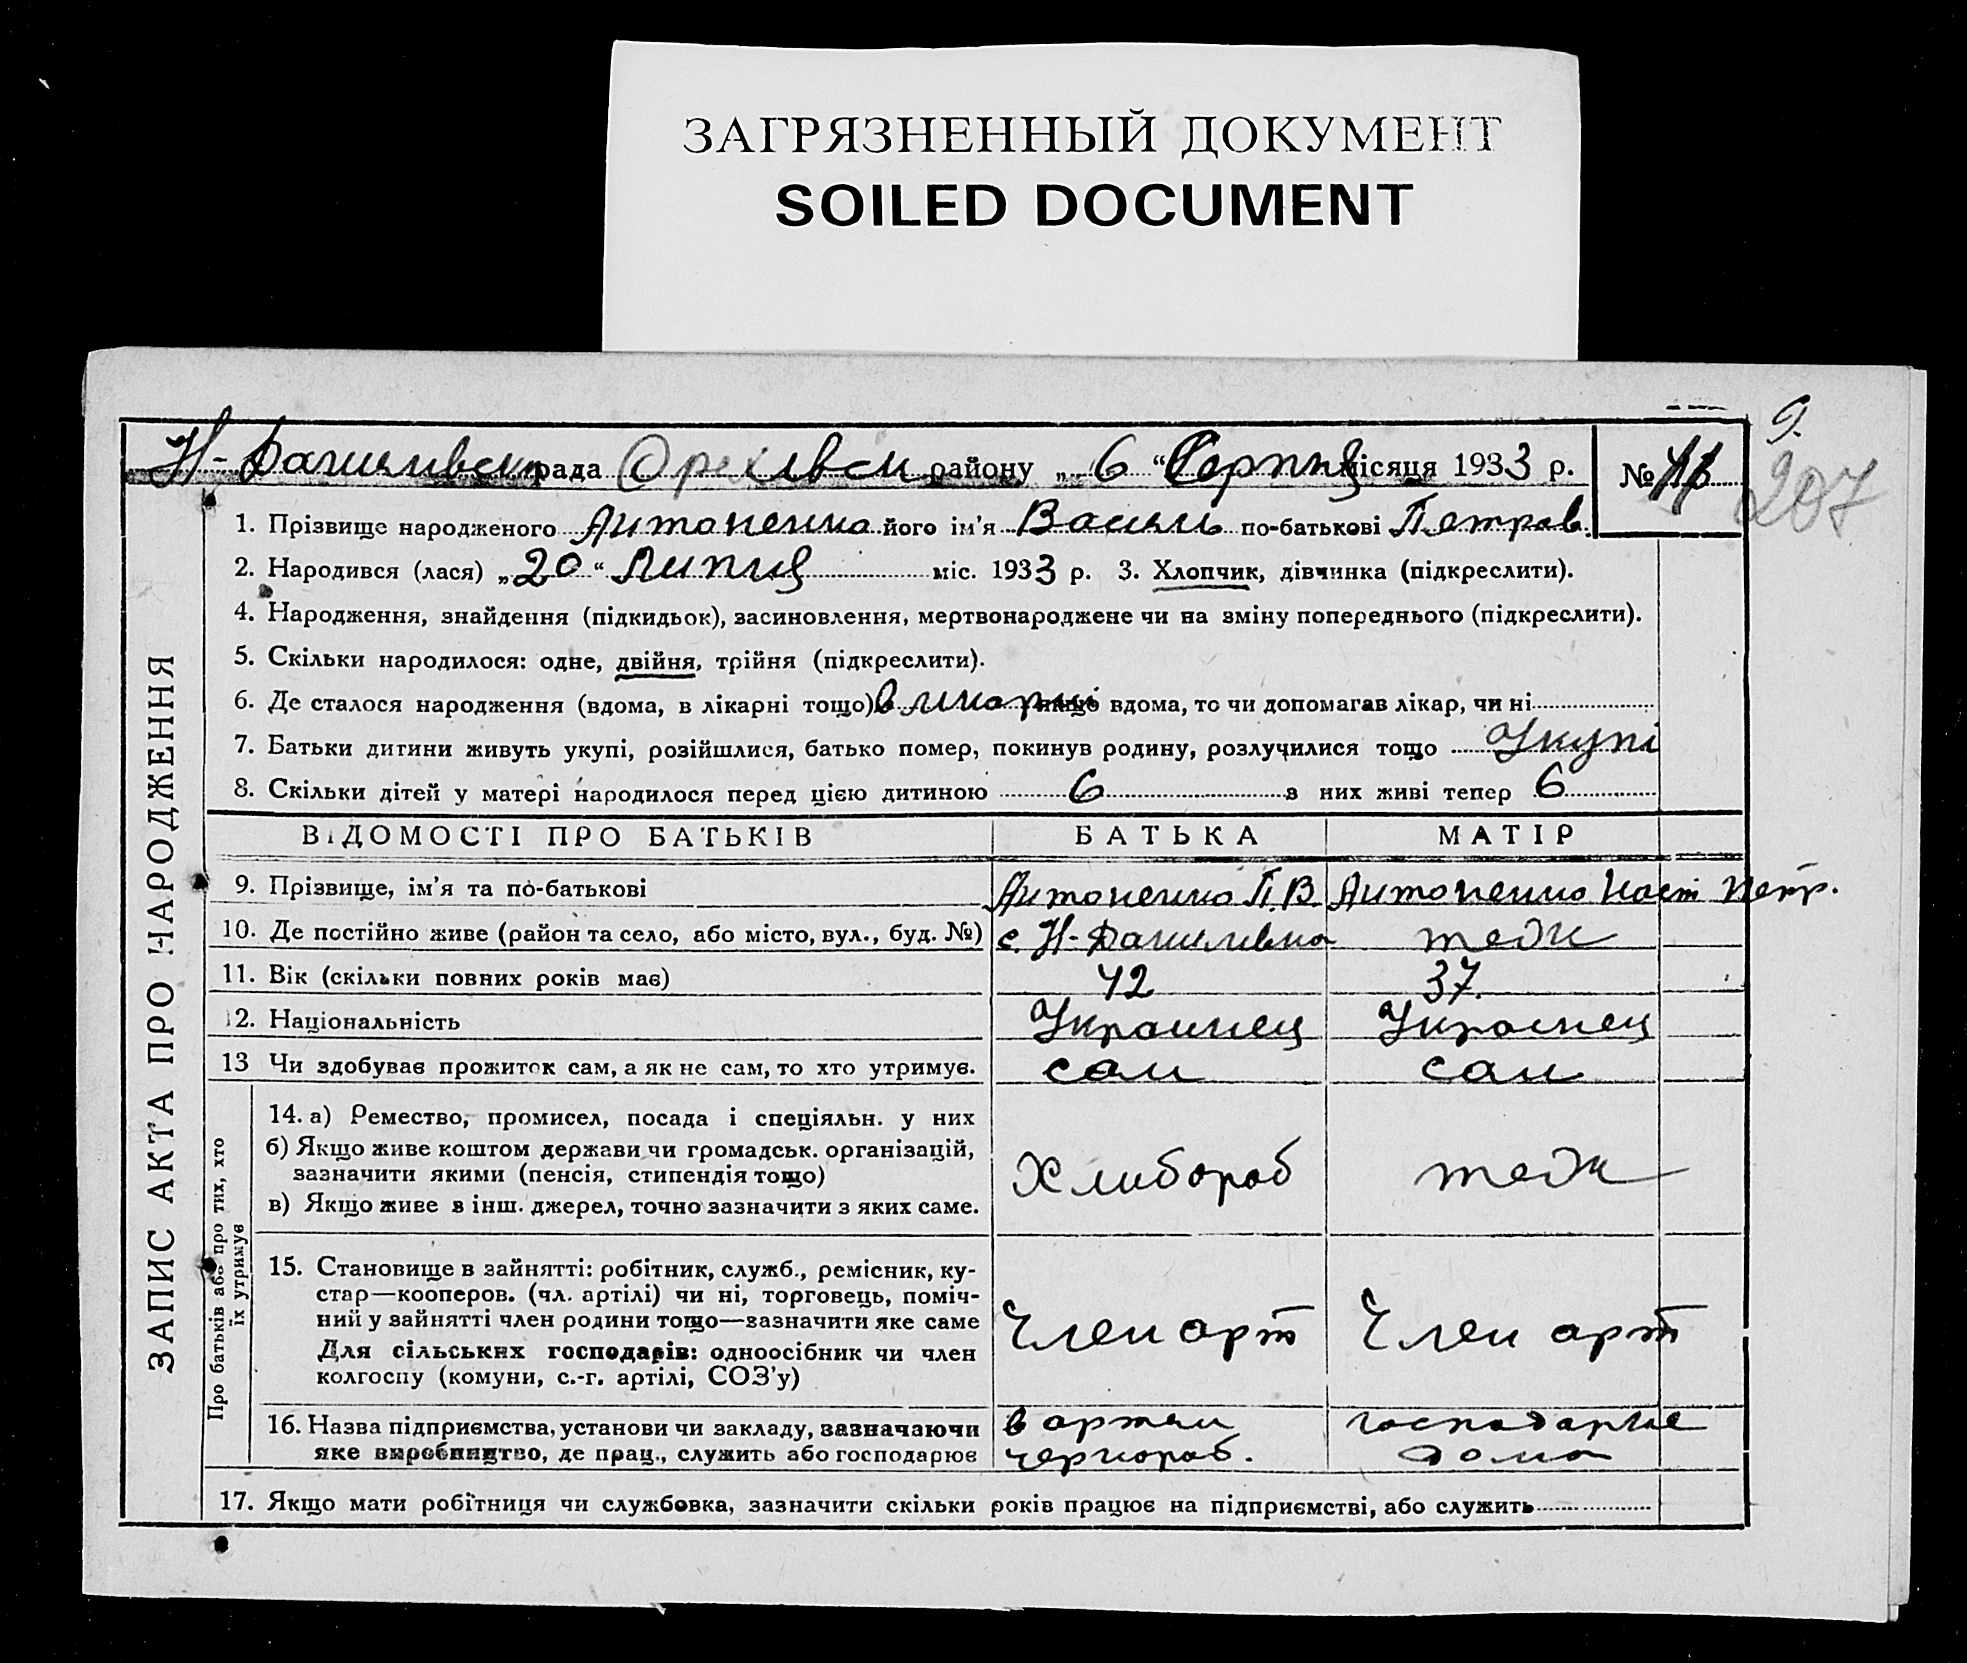 ЗАГРЯЗНЕННЫЙ ДОКУМЕНТ
SOILED DOCUMENT
9.
207
Н-Данилівськ рада Орехівськ району „ 6 “ Серпня місяця 1933 р. №
1. Прізвище народженого Антоненко його ім'я Василь по-батькові Петров.
2. Народився (лася) „ 20 “ Липня міс. 1933 р. 3. Хлопчик, дівчинка (підкреслити).
4. Народження, знайдення (підкидьок), засиновлення, мертвонароджене чи на зміну попереднього (підкреслити).
5. Скільки народилося: одне, двійня, трійня (підкреслити).
6. Де сталося народження (вдома, в лікарні тощо) в ликарні якщо вдома, то чи допомагав лікар, чи ні
7. Батьки дитини живуть укупі, розійшлися, батько помер, покинув родину, розлучилися тощо Укупі
8. Скільки дітей у матері народилося перед цією дитиною 6 з них живі тепер 6
ВІДОМОСТІ ПРО БАТЬКІВ БАТЬКА МАТІР
9. Прізвище, ім'я та по-батькові Антоненко П.В. Антоненко Наст Петр.
10. Де постійно живе (район та село, або місто, вул., буд. №) с. Н-Данилівка тедж
11. Вік (скільки повних років має) 42 37
12. Національність Украинец Украинец
13 Чи здобував прожиток сам, а як не сам, то хто утримує. сам сам
14. а) Ремество, промисел, посада і спеціяльн. у них
б) Якщо живе коштом держави чи громадськ. організацій,
зазначити якими (пенсія, стипендія тощо)
в) Якщо живе з інш. джерел, точно зазначити з яких саме.
Хлибороб тедж
15. Становище в зайнятті: робітник, служб., ремісник, ку-
стар—кооперов. (чл. артілі) чи ні, торговець, поміч-
ний у зайнятті член родини тощо—зазначити яке саме
Для сільських господарів: одноосібник чи член
колгоспу (комуни, с.-г. артілі, СОЗ'у)
Член арт Член арт
16. Назва підприємства, установи чи закладу, зазначаючи
яке виробництво, де прац., служить або господарює
в артели
чернороб.
господарює
дома
17. Якщо мати робітниця чи службовка, зазначити скільки років працює на підприємстві, або служить
ЗАПИС АКТА ПРО НАРОДЖЕННЯ
Про батьків або про тих, хто
їх утримує